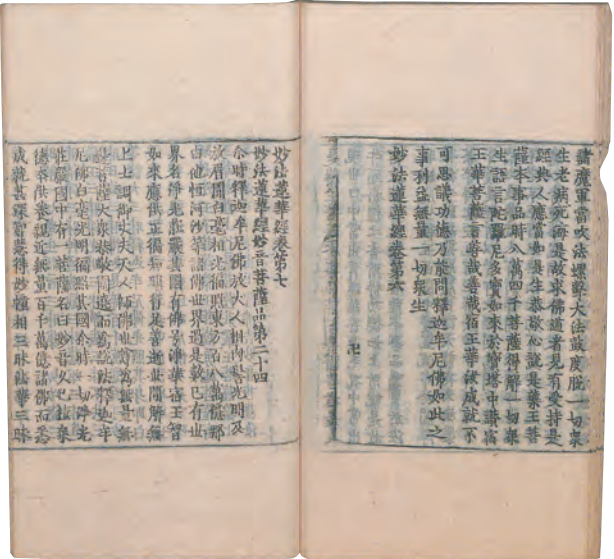 諸魔軍當吹法螺擊大法鼓度脫一切衆
生老病死海是故求佛道者見有受持是
經典人應當如是生恭敬心說是藥王菩
薩本事品時八萬四千菩薩得解一切衆
生語言陀羅尼多寶如來於寶塔中讚宿
王華菩薩言善哉善哉宿王華汝成就不
可思議功德乃能問釋迦牟尼佛如此之
事利益無量一切衆生
妙法蓮華經卷第六
卍
妙法蓮華經卷第七
妙法蓮華經妙音菩薩品第二十四
尒時釋迦牟尼佛放大人相肉髻光明及
放眉間白毫相光徧照東方百八萬億那
由他恒河沙等諸佛世界過是數已有世
界名淨光莊嚴其國有佛號淨華宿王智
如來應供正徧知明行足善逝世間解無
上士調御丈夫天人師佛世尊為無量無
邊菩薩大衆恭敬圍遶而為說法釋迦牟
尼佛白毫光明徧照其國尒時一切淨光
莊嚴國中有一菩薩名曰妙音久已植衆
德本供養親近無量百千萬億諸佛而悉
成就甚深智慧得妙幢相三昧法華三昧